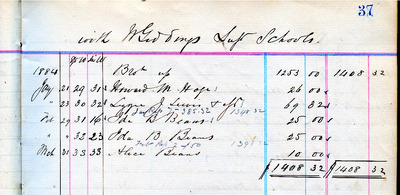 37
with W Giddings Supt Schools.
1884 Brot up 1253 00 1408 32
Jany 21 29 31 Howard M. Hope 26 00
" 23 30 32 Lizzie J. Lewis & 69 32
385.32 1398 32
Feb 29 31 16 Ida B Beans 25 00
" " 32 23 Ida B. Beans 25 00
1398
Mch 31 33 33 Alice Beans 10 00
1408 32 1408 32